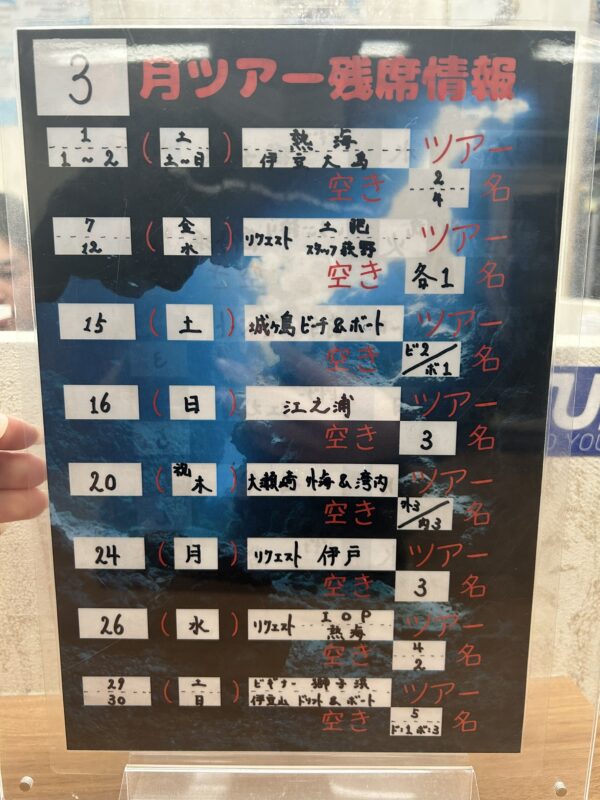 3 月ツアー残席情報
1 ( 土 ) 熱海 ツアー
1～2 土~日 伊豆大島
空き 2 名
4
7 ( 金 ) リクエスト 土肥 ツアー
12 水 スタッフ荻野
空き 各1 名
15 ( 土 ) 城ヶ島ビーチ&ボート ツアー
空き ビ2/ボ1 名
16 ( 日 ) 江之浦 ツアー
空き 3 名
20 ( 祝木 ) 大瀬崎 外海&湾内 ツアー
空き 外3/内3 名
24 ( 月 ) リクエスト 伊戸 ツアー
空き 3 名
26 ( 水 ) リクエスト IOP ツアー
熱海
空き 4 名
2
29 ( 土 ) ビギナー 獅子浜 ツアー
30 日 伊豆山 ドリフト&ボート
空き 5 名
ド:1 ボ:3